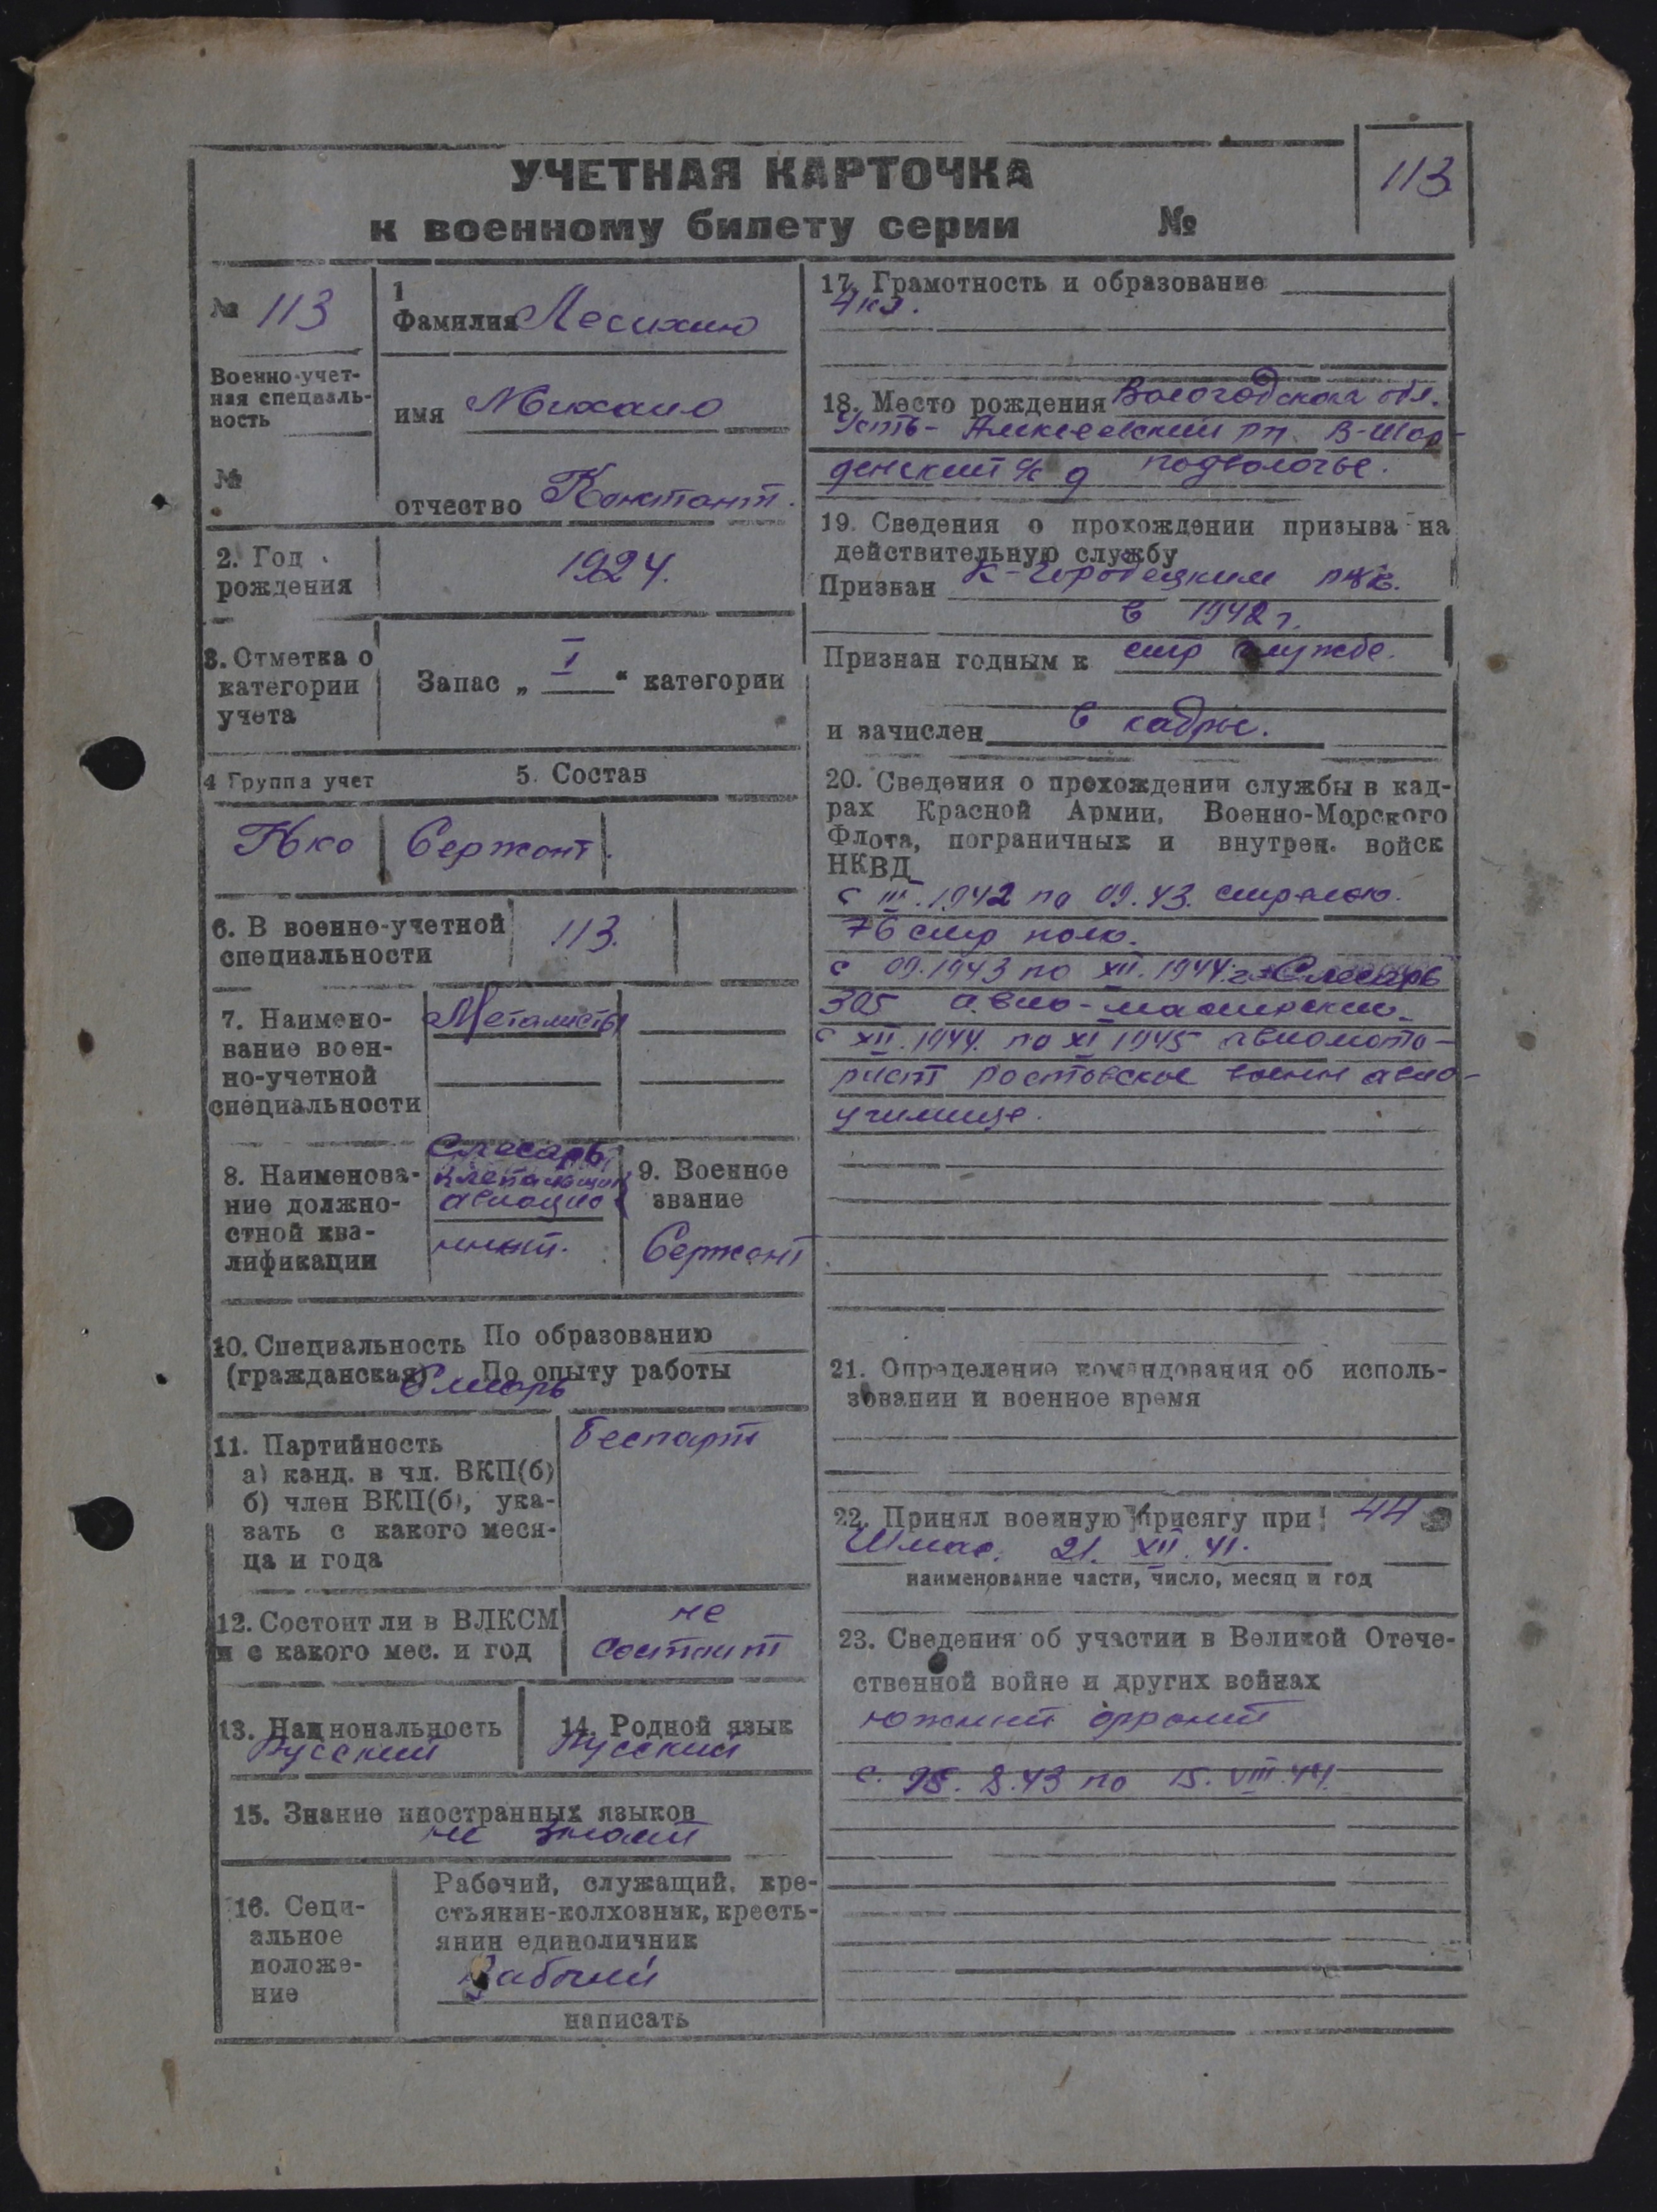 УЧЕТНАЯ КАРТОЧКА
к военному билету серии №
113
№ 113
Военно-учет-
ная специаль-
ность
№
1
Фамилия Лесихин
имя Михаил
отчество Константи.
2. Год
рождения
1924.
3. Отметка о
категории
учета
Запас „ I “ категории
4 Группа учет
5. Состав
Сержант.
6. В военно-учетной
специальности
113.
7. Наимено-
вание воен-
но-учетной
специальности
Металисты
8. Наименова-
ние должно-
стной ква-
лификации
Слесарь
клепальщик
авиацио
9. Военное
звание
Сержант
10. Специальность
(гражданская)
По образованию
По опыту работы
11. Партийность
а) канд. в чл. ВКП(б)
б) член ВКП(б), ука-
зать с какого меся-
ца и года
Беспарт
12. Состоит ли в ВЛКСМ
и с какого мес. и год
не
состоит
13. Национальность
Русский
14. Родной язык
Русский
15. Знание иностранных языков
не знает
16. Соци-
альное
положе-
ние
Рабочий, служащий, кре-
стьянин-колхозник, кресть-
янин единоличник
Рабочий
написать
17. Грамотность и образование
4 кл.
18. Место рождения Вологодская обл.
Усть-Алексеевский рн. В-Шар-
денский с/с д Подволочье.
19. Сведения о прохождении призыва на
действительную службу
Призван К-Городецким РВК.
в 1942 г.
Признан годным к стр службе.
и зачислен в кадры.
20. Сведения о прохождении службы в кад-
рах Красной Армии, Военно-Морского
Флота, пограничных и внутрен. войск
НКВД
с III.1942 по 09.43. стрелок.
76 стр полк.
с 09.1943 по XII.1944 г Слесарь
305 авио-мастрские.
с XII.1944. по XI 1945 авиамото-
рист Ростовское военн авио-
училище.
21. Определение командования об исполь-
зовании и военное время
22. Принял военную присягу при 44
21. XII. 41.
наименование части, число, месяц и год
23. Сведения об участии в Великой Отече-
ственной войне и других войнах
южный фронт
8.43 по 15. VIII.44.